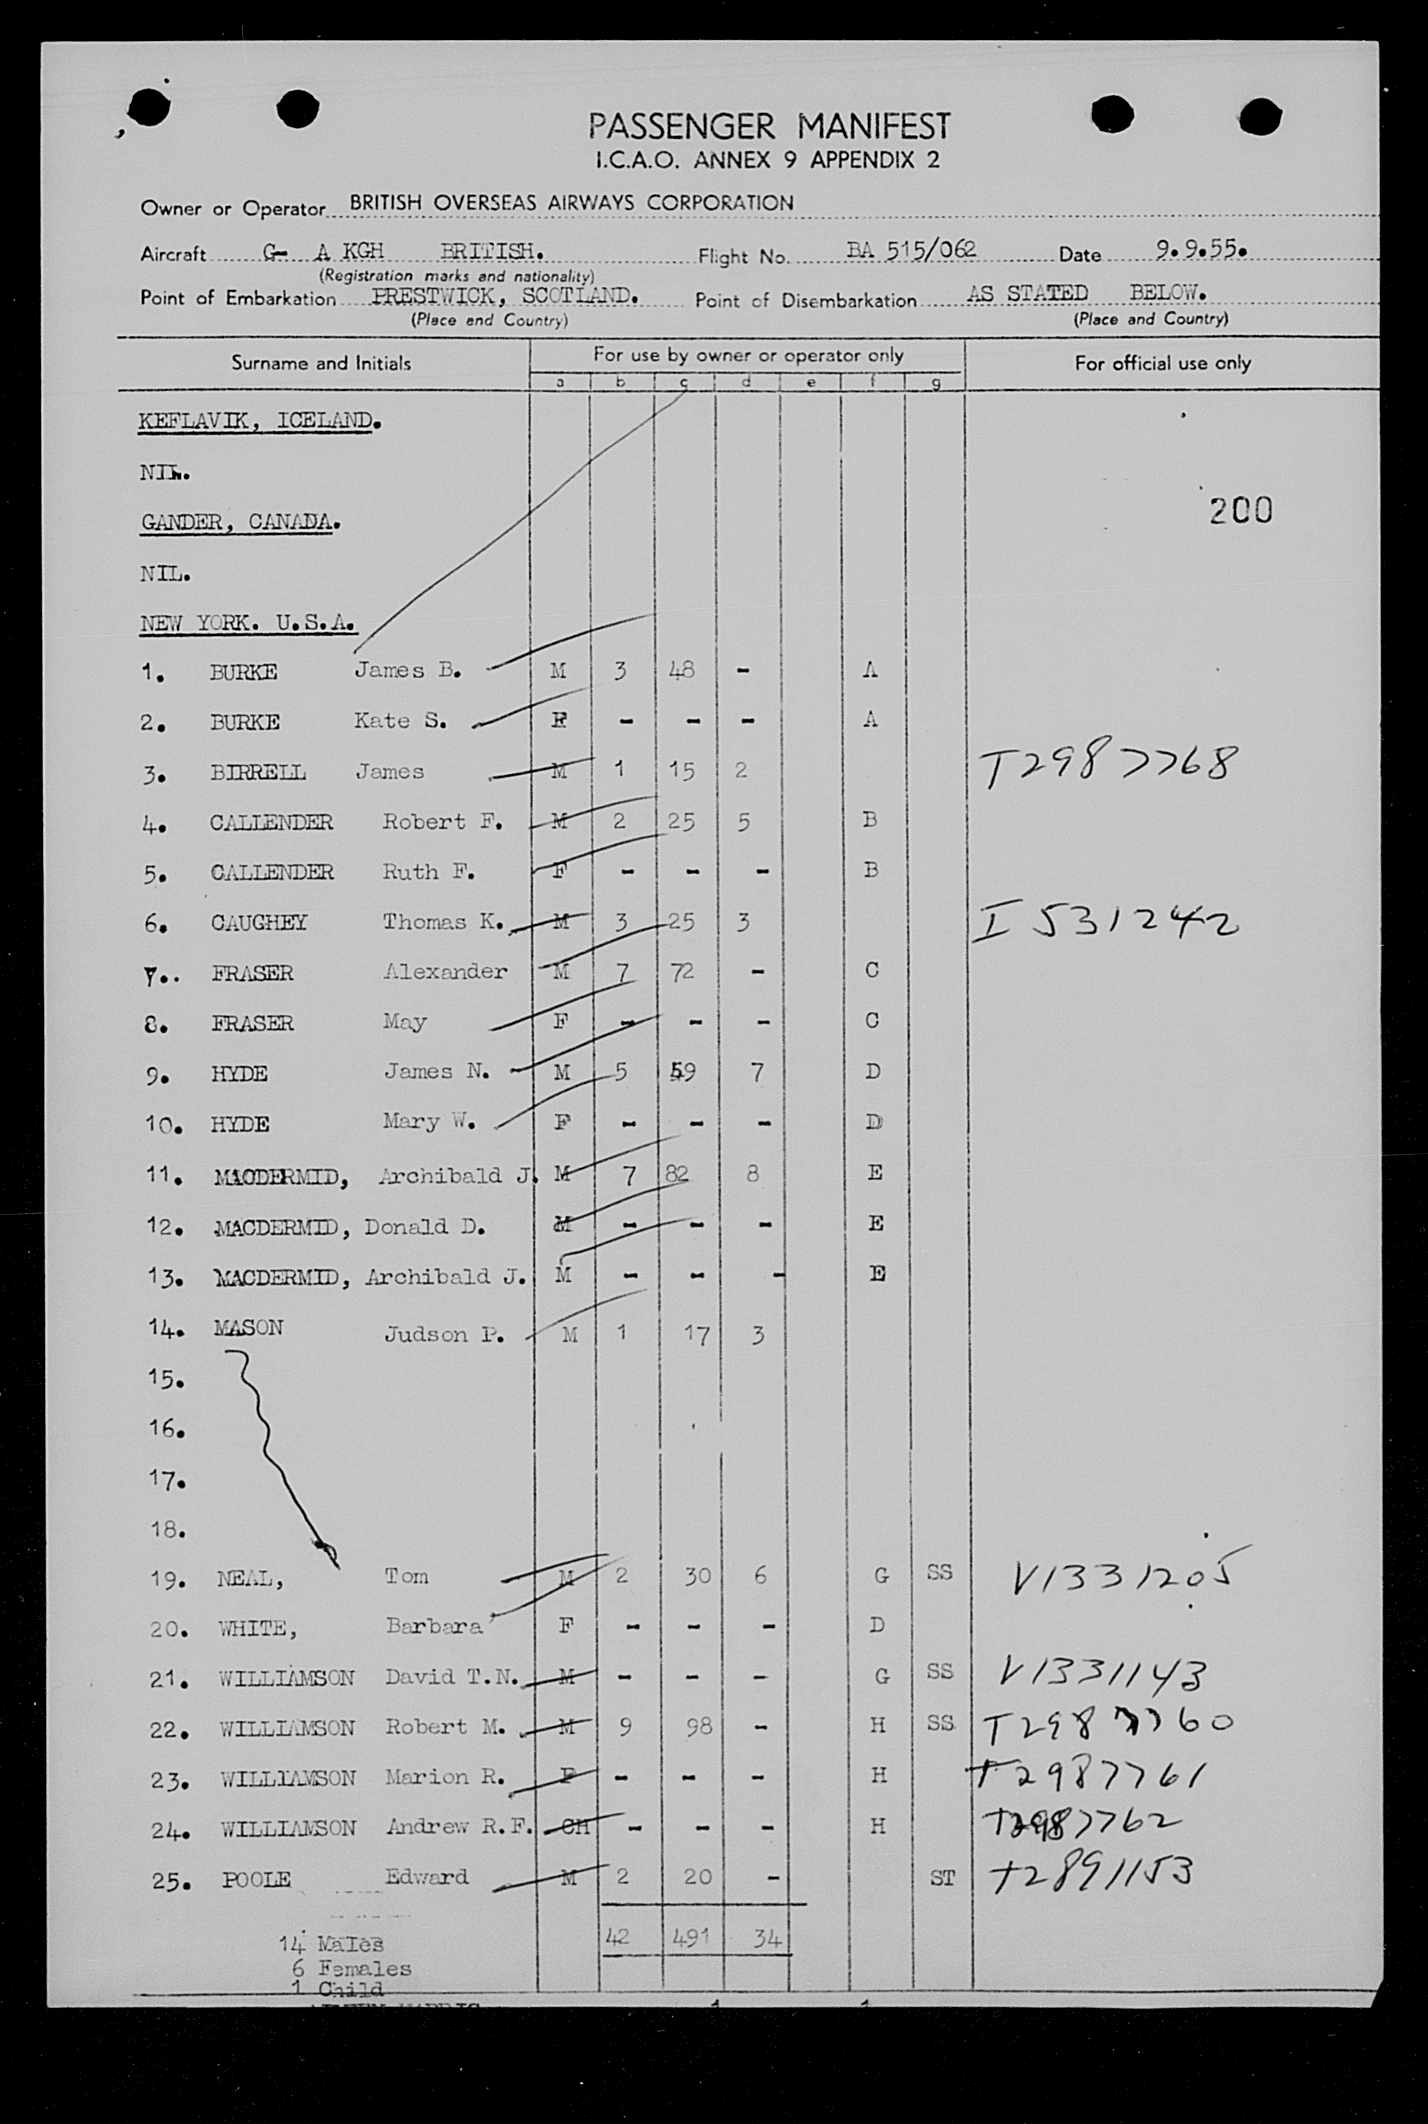 PASSENGER MANIFEST
I.C.A.O. ANNEX 9 APPENDIX 2
Owner or Operator BRITISH OVERSEAS AIRWAYS CORPORATION
Aircraft G- A KGH BRITISH. Flight No. BA 515/062 Date 9.9.55.
(Registration marks and nationality)
Point of Embarkation PRESTWICK, SCOTLAND. Point of Disembarkation AS STATED BELOW.
(Place and Country) (Place and Country)
Surname and Initials For use by owner or operator only For official use only
a b c d e f g
KEFLAVIK, ICELAND.
NIL.
200
GANDER, CANADA.
NIL.
NEW YORK. U.S.A.
1. BURKE James B. M 3 48 - A
2. BURKE Kate S. F - - - A
3. BIRRELL James M 1 15 2 T2987768
4. CALLENDER Robert F. M 2 25 5 B
5. CALLENDER Ruth F. F - - - B
6. CAUGHEY Thomas K. M 3 25 3 I 531242
7.. FRASER Alexander M 7 72 - C
8. FRASER May F - - - C
9. HYDE James N. M 5 59 7 D
10. HYDE Mary W. F - - - D
11. MACDERMID, Archibald J. M 7 82 8 E
12. MACDERMID, Donald D. M - - - E
13. MACDERMID, Archibald J. M - - - E
14. MASON Judson P. M 1 17 3
15.
16.
17.
18.
19. NEAL, Tom M 2 30 6 G SS V1331205
20. WHITE, Barbara F - - - D
21. WILLIAMSON David T.N. M - - - G SS V1331143
22. WILLIAMSON Robert M. M 9 98 - H SS T2987760
23. WILLIAMSON Marion R. F - - - H T2987761
24. WILLIAMSON Andrew R.F. CH - - - H T2987762
25. POOLE Edward M 2 20 - ST T2891153
14 Males 42 491 34
6 Females
1 Child